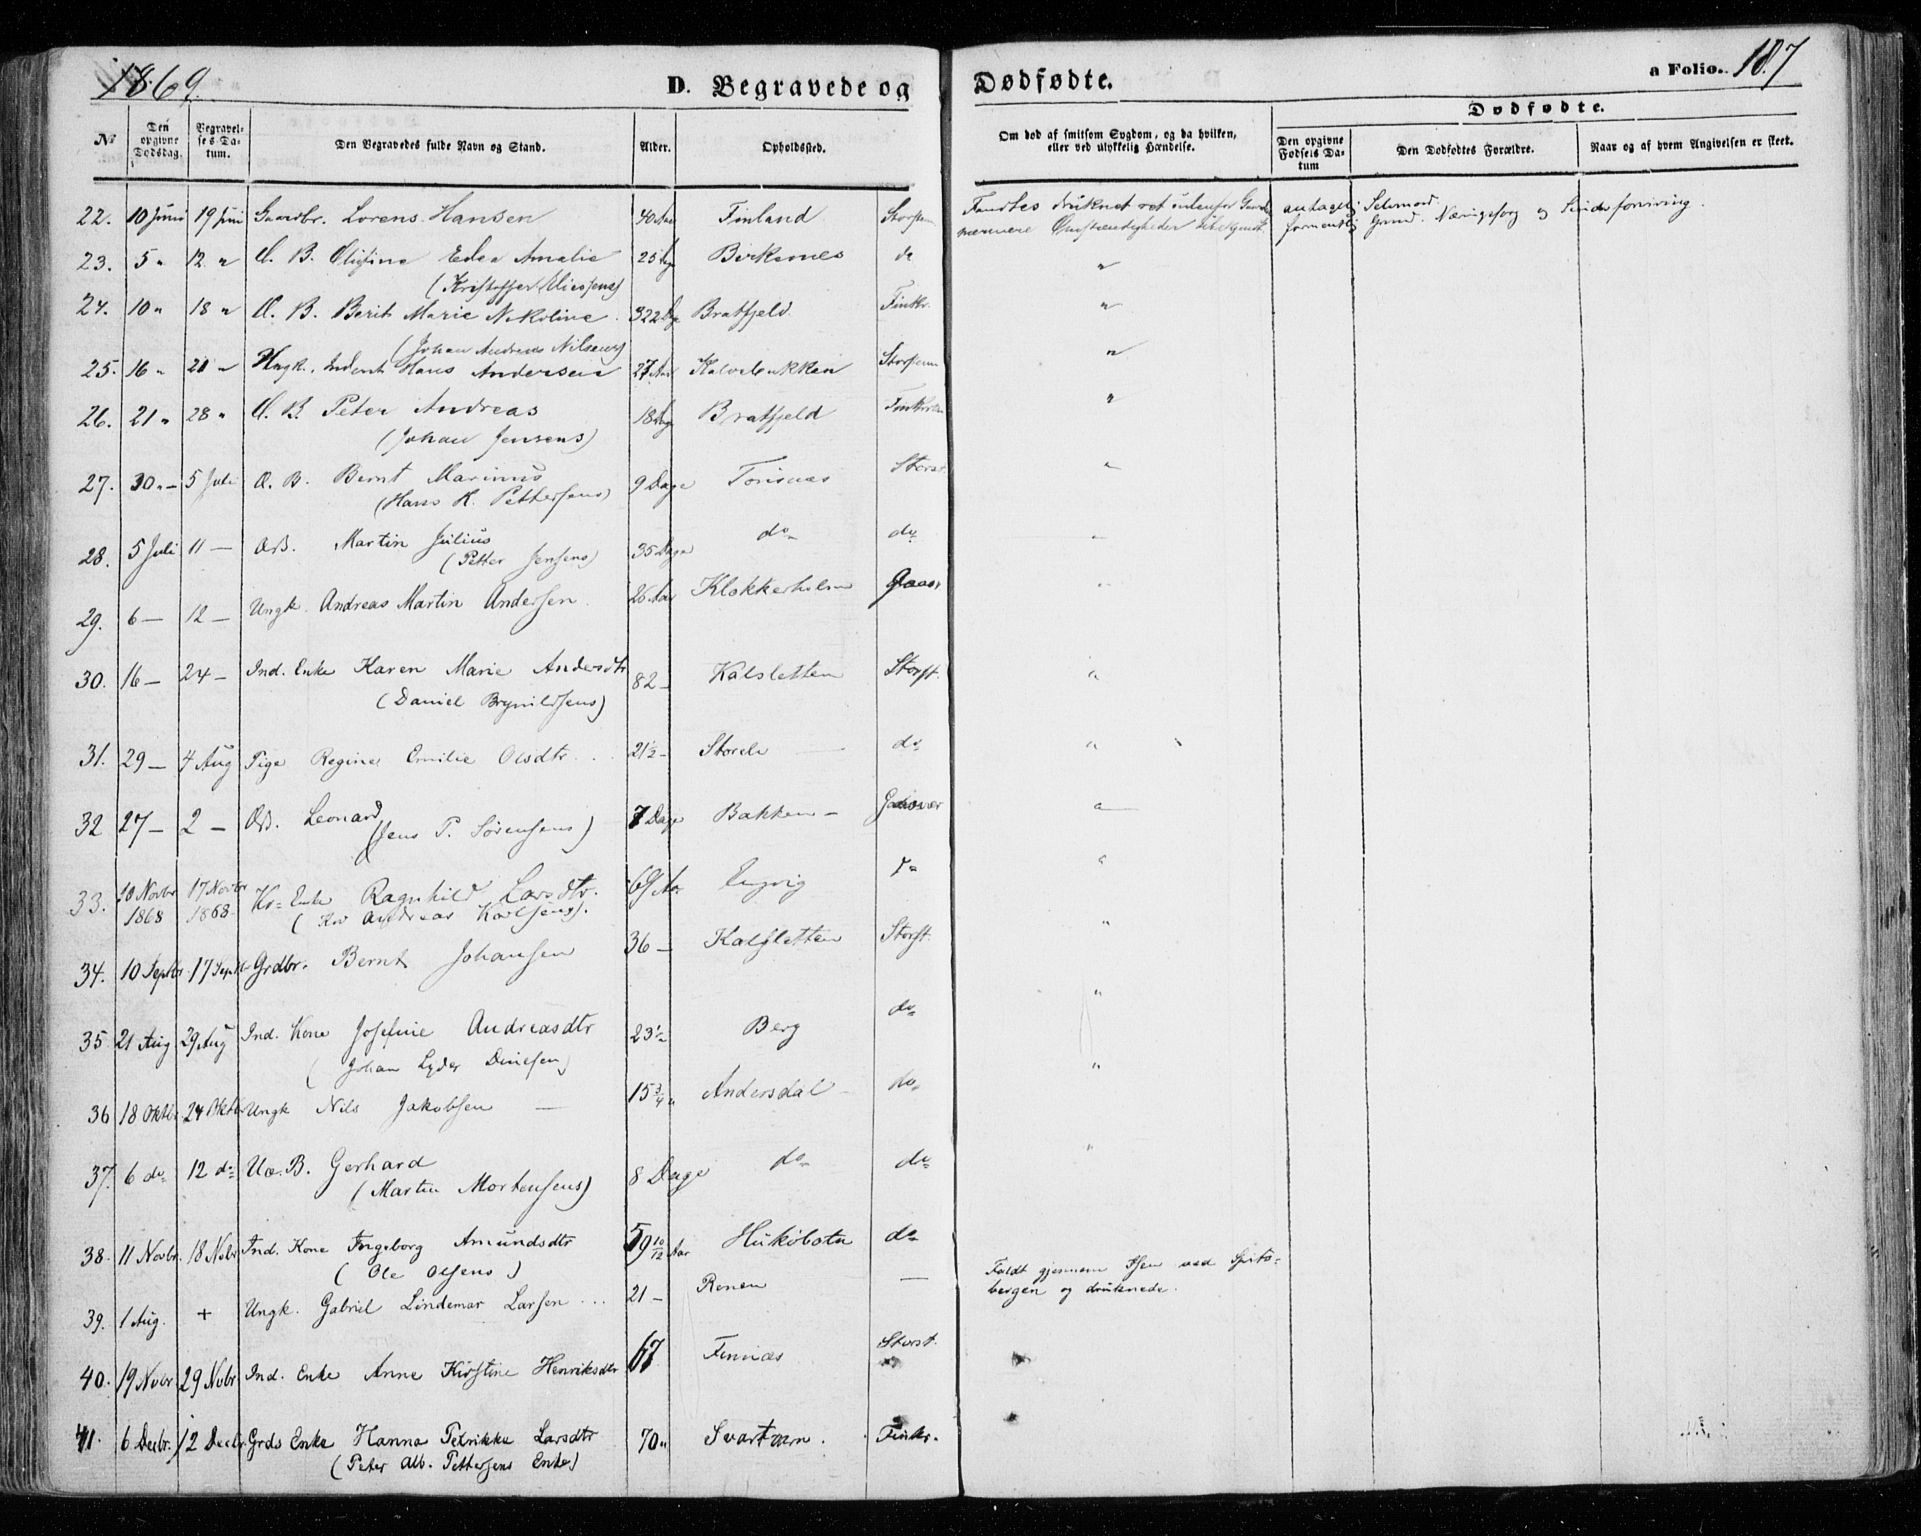 1869.
D. Begravede og Dødfødte.
a Folio. 187
№
Den opgivne Dødsdag.
Begravelses Datum.
Den Begravedes fulde Navn og Stand.
Alder.
Opholdssted.
Om død af smitsom Sygdom, og da hvilken, eller ved ulykkelig Hændelse.
Dødfødte.
Den opgivne Fødsels Datum
Den Dødfødtes Forældre.
Naar og af hvem Angivelsen er skeet.
22. 10 Juni 19 Juni Gaardbr. Lorens Hansen 40 Aar Finland Fandtes druknet
antagelig Selvmord.
nærmere Omstændigheder ubekjendt. formentlig Grund. Næringssorg og
23. 5 " 12 " Æ. B. Edea Amalie 25 Birkenes do "
(Kristoffer
24. 10 " 18 " Æ. B. Berit Marie Nikoline 322 Bratfjeld Finkr. "
(Johan Andreas Nilsens)
25. 16 " 21 " Ungk. Hans Andersen 27 Aar "
26. 21 " 28 " Æ. B. Peter Andreas 18 Dage Bratfjeld "
(Johan Jensens)
27. 30 " 5 Juli Æ. B. Bernt Marinus 9 Dage Storst. "
(Hans H. Pettersens)
28. 5 Juli 11 — ÆB. Martin Julius 35 Dage do do
(Petter Jensens)
29. 6 — 12 — Ungk. Andreas Martin Andersen 26 Aar Klokkerholm "
30. 16 — 24 — Ind. Enke Karen Marie Andersdtr 82 — Kalsletten Storst. "
(Daniel Brynildsens)
31. 29 — 4 Aug Pige Regine Emilie Olsdtr 21½ — do "
32 27 — 2 — ÆB. Leonard 7 Dage Bakken — "
(Jens P. Sørensens)
33. 10 Novbr 1868 17 Novbr 1868 Enke Ragnhild Larsdtr. 69 Aar Engvig "
( Andreas Karlsens).
34. 10 Septbr 17 Septbr Grdbr. Bernt Johansen 36 — Kalsletten Storst. "
35 21 Aug 29 Aug Ind. Kone Josefine Andreasdtr 23½ Berg do "
(Johan Lyder Dinesen)
36 18 Oktbr 24 Oktbr Ungk Nils Jakobsen — 15¾ " Andersdal — do "
37. 6 do 12 do Uæ. B. Gerhard 8 Dage do do "
(Martin Mortensens)
38. 11 Novbr. 18 Nobr. Ind. Kone Ingeborg Amundsdtr 59 10/12 Aar do
(Ole Olsens)
39. 1 Aug. + Ungk. Gabriel Lindemar Larsen ... 21 — Renen — Faldt gjennem Isen ved Spits-
bergen og druknede.
40. 19 Nobr 29 Nobr Ind. Enke Anne Kirstine Henriksdtr 67 Finnæs Storst.
41. 6 Decbr. 12 Decbr. Grds Enke Hanna Petrikke Larsdtr 70 " Finkr.
(Peter Alb. Pettersens Enke)